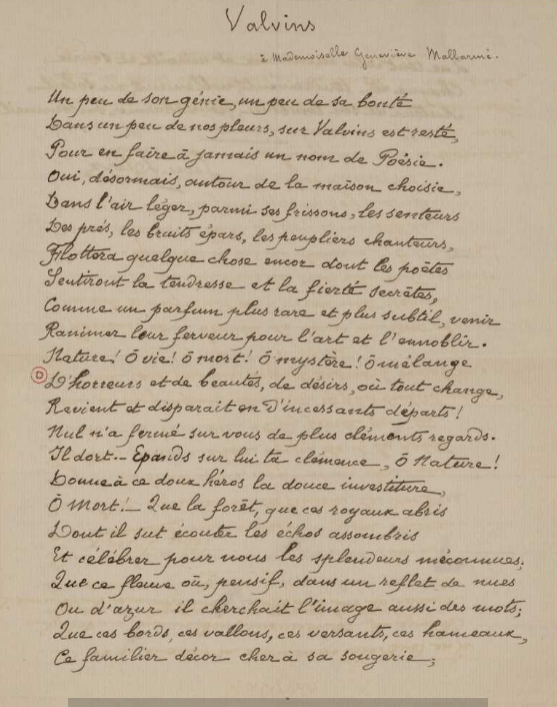 Valvins
à Mademoiselle Geneviève Mallarmé.
Un peu de son génie, un peu de sa bonté
Dans un peu de nos pleurs, sur Valvins est resté,
Pour en faire à jamais un nom de Poésie.
Oui, désormais, autour de la maison choisie,
Dans l'air léger, parmi ses frissons, les senteurs
Des prés, les bruits épars, les peupliers chanteurs,
Flottera quelque chose encor dont les poëtes
Sentiront la tendresse et la fierté secrètes,
Comme un parfum plus rare et plus subtil, venir
Ranimer leur ferveur pour l'art et l'ennoblir.
Nature! Ô vie! Ô mort! Ô mystère! Ô mélange
D'horreurs et de beautés, de désirs, où tout change,
Revient et disparait en d'incessants départs!
Nul n'a fermé sur vous de plus cléments regards.
Il dort... Epands sur lui ta clémence, Ô Nature!
Donne à ce doux héros la douce investiture,
Ô Mort!... Que la forêt, que ces royaux abris
Dont il sut écouter les échos assombris
Et célébrer pour nous les splendeurs méconnues;
Que ce fleuve où, pensif, dans un reflet de nues
Ou d'azur il cherchait l'image aussi des mots;
Que ces bords, ces vallons, ces versants, ces hameaux,
Ce familier décor cher à sa songerie,